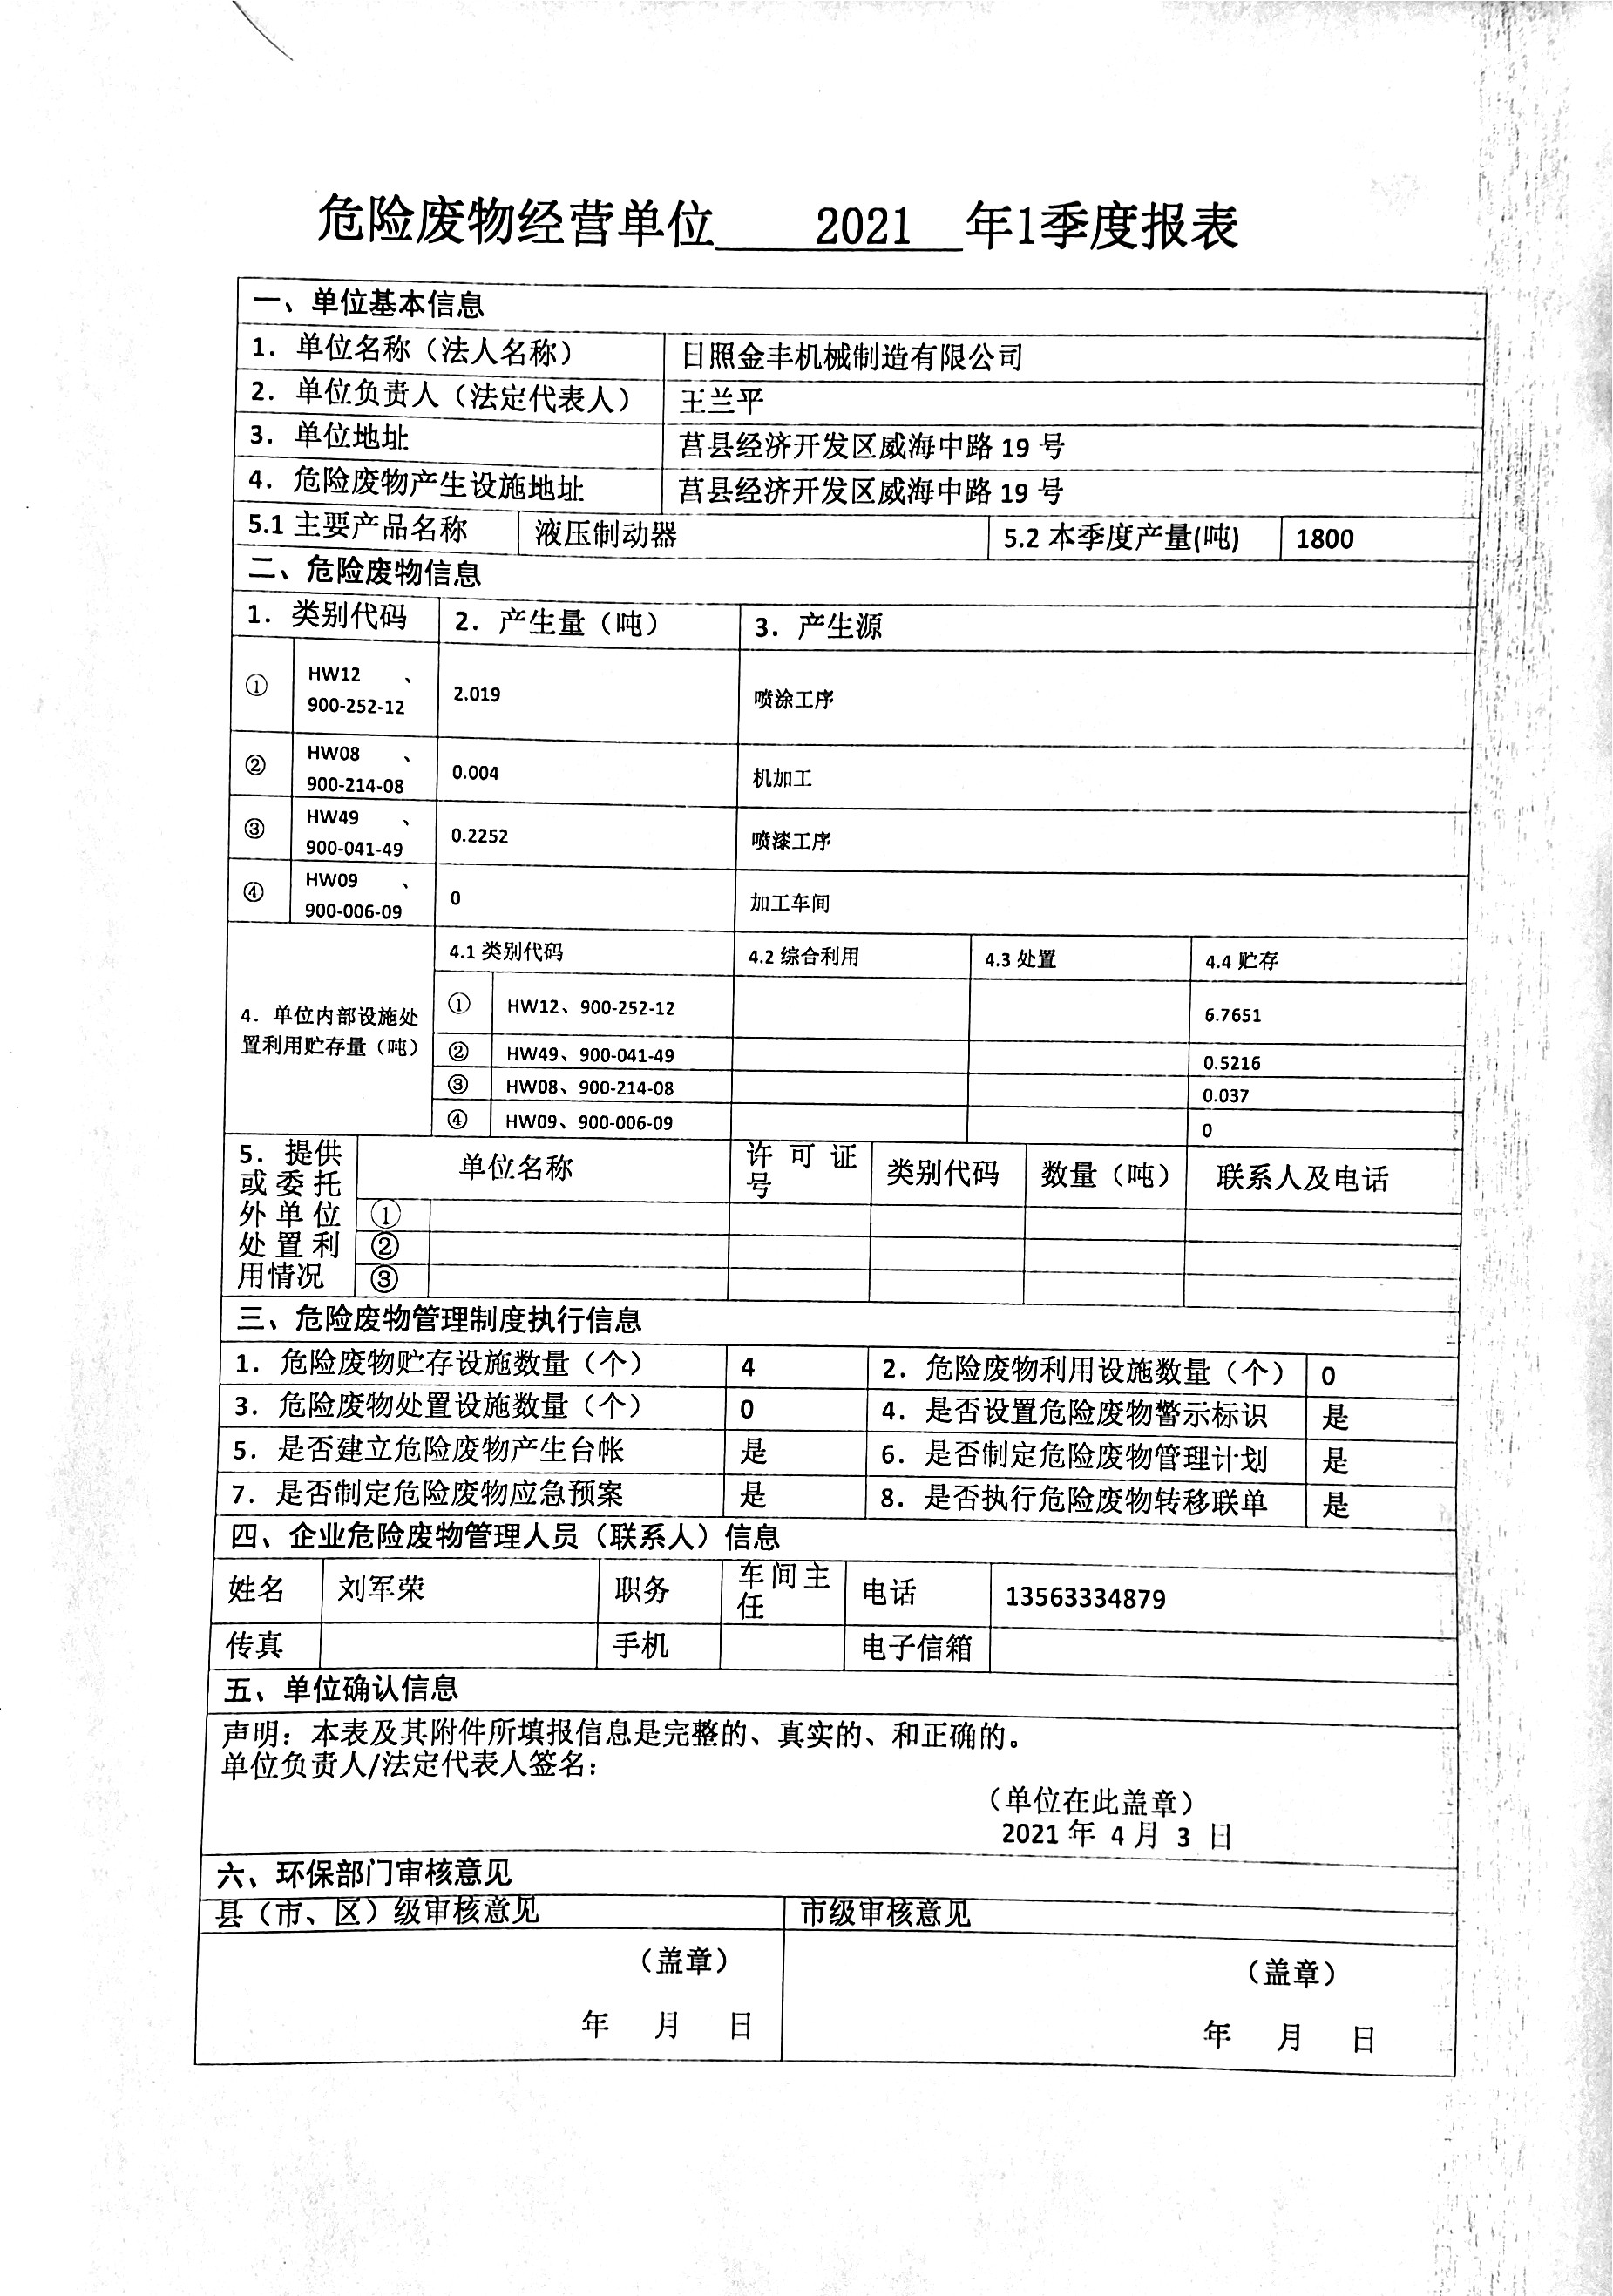 危险废物经营单位 2021 年1季度报表
一、单位基本信息
1. 单位名称（法人名称） 日照金丰机械制造有限公司
2. 单位负责人（法定代表人） 王兰平
3. 单位地址 莒县经济开发区威海中路 19 号
4. 危险废物产生设施地址 莒县经济开发区威海中路 19 号
5.1 主要产品名称 液压制动器 5.2 本季度产量(吨) 1800
二、危险废物信息
1. 类别代码 2. 产生量（吨） 3. 产生源
① HW12 、
900-252-12 2.019 喷涂工序
② HW08 、
900-214-08 0.004 机加工
③ HW49 、
900-041-49 0.2252 喷漆工序
④ HW09 、
900-006-09 0 加工车间
4. 单位内部设施处
置利用贮存量（吨）
4.1 类别代码 4.2 综合利用 4.3 处置 4.4 贮存
① HW12、900-252-12 6.7651
② HW49、900-041-49 0.5216
③ HW08、900-214-08 0.037
④ HW09、900-006-09 0
5. 提供
或委托
外单位
处置利
用情况
单位名称 许可证
号 类别代码 数量（吨） 联系人及电话
①
②
③
三、危险废物管理制度执行信息
1. 危险废物贮存设施数量（个） 4 2. 危险废物利用设施数量（个） 0
3. 危险废物处置设施数量（个） 0 4. 是否设置危险废物警示标识 是
5. 是否建立危险废物产生台帐 是 6. 是否制定危险废物管理计划 是
7. 是否制定危险废物应急预案 是 8. 是否执行危险废物转移联单 是
四、企业危险废物管理人员（联系人）信息
姓名 刘军荣 职务 车间主
任 电话 13563334879
传真 手机 电子信箱
五、单位确认信息
声明：本表及其附件所填报信息是完整的、真实的、和正确的。
单位负责人/法定代表人签名：
（单位在此盖章）
2021 年 4 月 3 日
六、环保部门审核意见
县（市、区）级审核意见 市级审核意见
（盖章） （盖章）
年 月 日 年 月 日